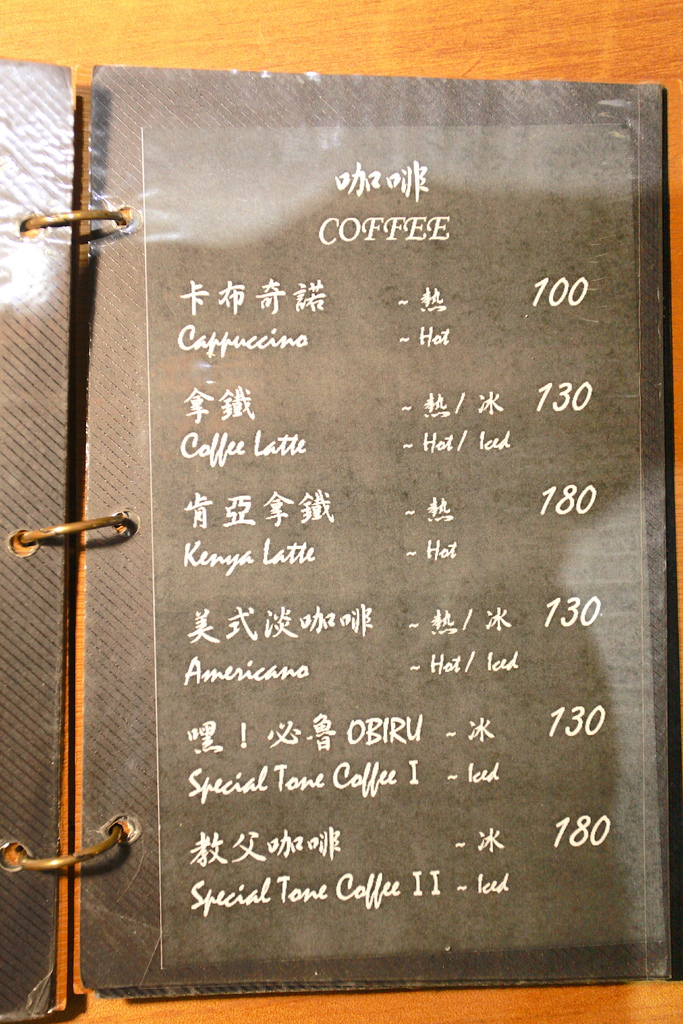 咖啡
COFFEE
卡布奇諾 ~ 熱 100
Cappuccino ~ Hot
拿鐵 ~ 熱/ 冰 130
Coffee Latte ~ Hot/ Iced
肯亞拿鐵 ~ 熱 180
Kenya Latte ~ Hot
美式淡咖啡 ~ 熱/ 冰 130
Americano ~ Hot/ Iced
嘿！必魯 OBIRU ~ 冰 130
Special Tone Coffee I ~ Iced
教父咖啡 ~ 冰 180
Special Tone Coffee II ~ Iced